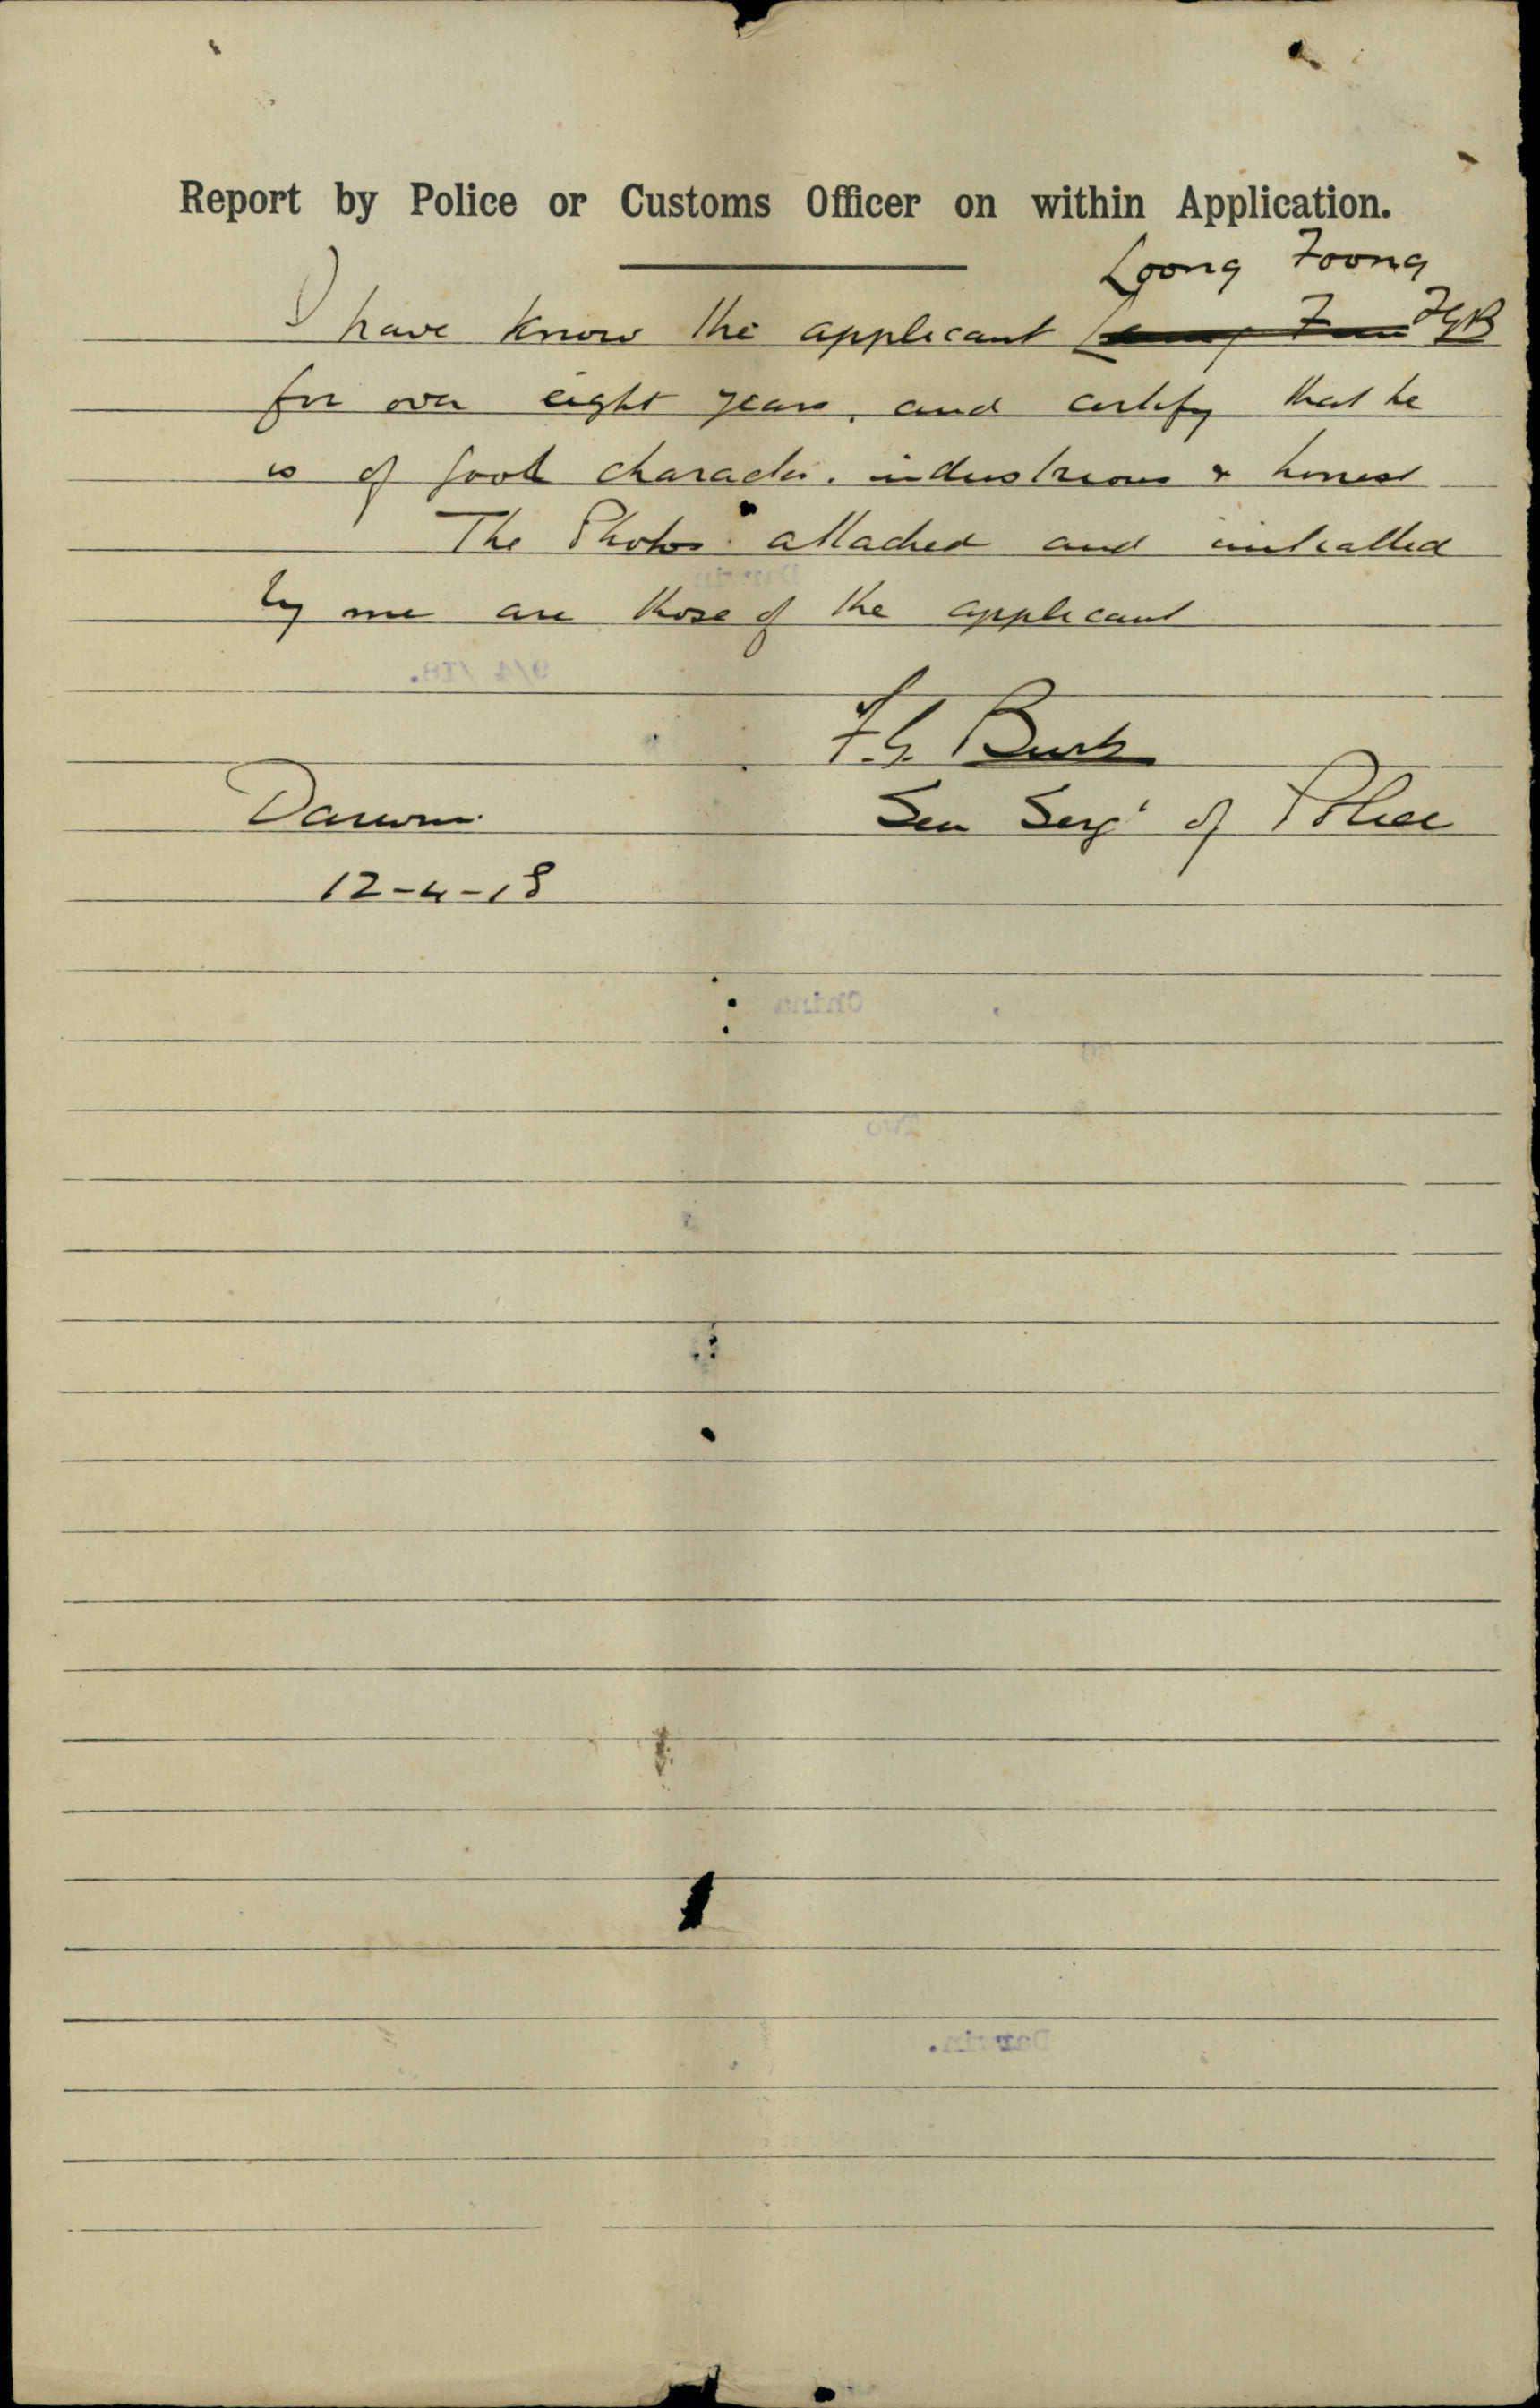 Report by Police or Customs Officer on within Application.
Loong Foong
I have know the applicant FGB
for over eight years, and certify that he
is of good character. industrious & honest
The Photos attached and initialled
by me are those of the applicant
9/4/18.
F.G. Burt
Darwin. Sen Sergt of Police
12-4-18
China
Two
Darwin.